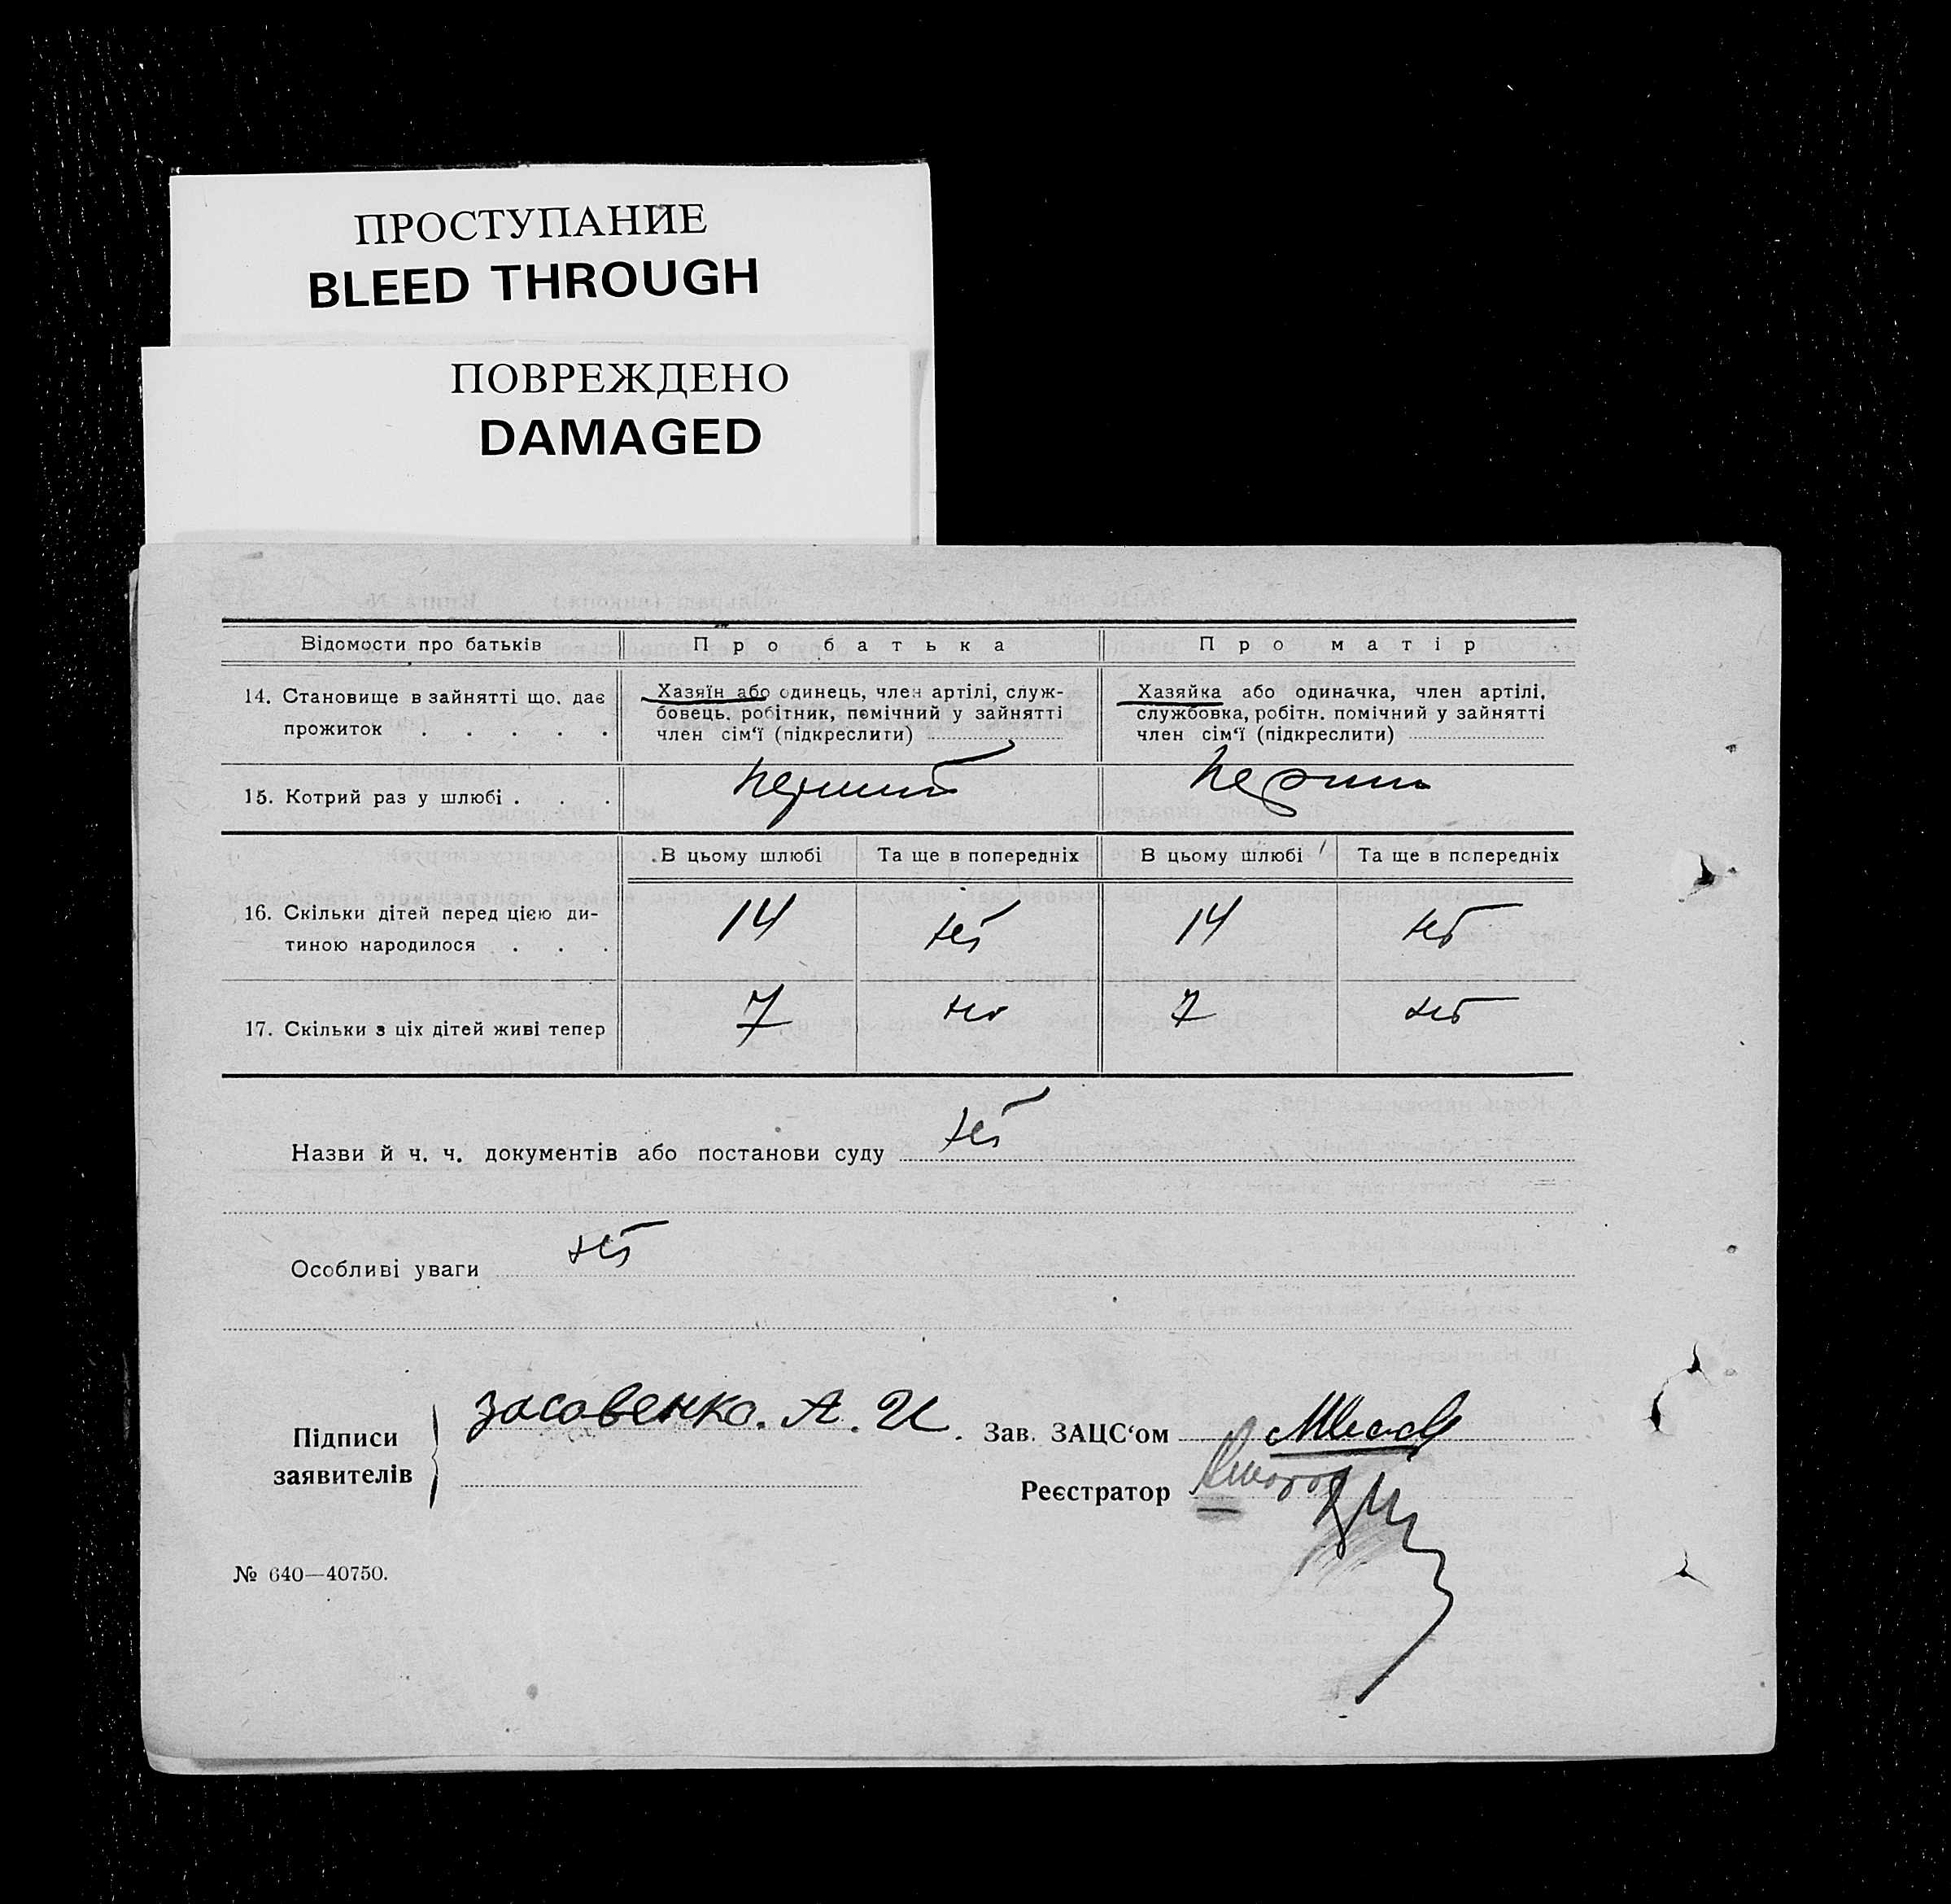 ПРОСТУПАНИЕ
BLEED THROUGH
ПОВРЕЖДЕНО
DAMAGED
Відомости про батьків
Про батька
Про матір
14. Становище в зайнятті що. дає
прожиток . . . . .
Хазяїн або одинець, член артілі, служ-
бовець. робітник, помічний у зайнятті
член сім'ї (підкреслити)
Хазяйка або одиначка, член артілі,
службовка, робітн. помічний у зайнятті
член сім'ї (підкреслити)
15. Котрий раз у шлюбі . . .
первый
В цьому шлюбі
Та ще в попередніх
В цьому шлюбі
Та ще в попередніх
16. Скільки дітей перед цією ди-
тиною народилося . . .
14
нет
14
нет
17. Скільки з ціх дітей живі тепер
7
нет
7
нет
Назви й ч. ч. документів або постанови суду нет
Особливі уваги нет
Підписи
заявителів
Засовенко. А. И.
Зав. ЗАЦС'ом
Реєстратор
№ 640—40750.